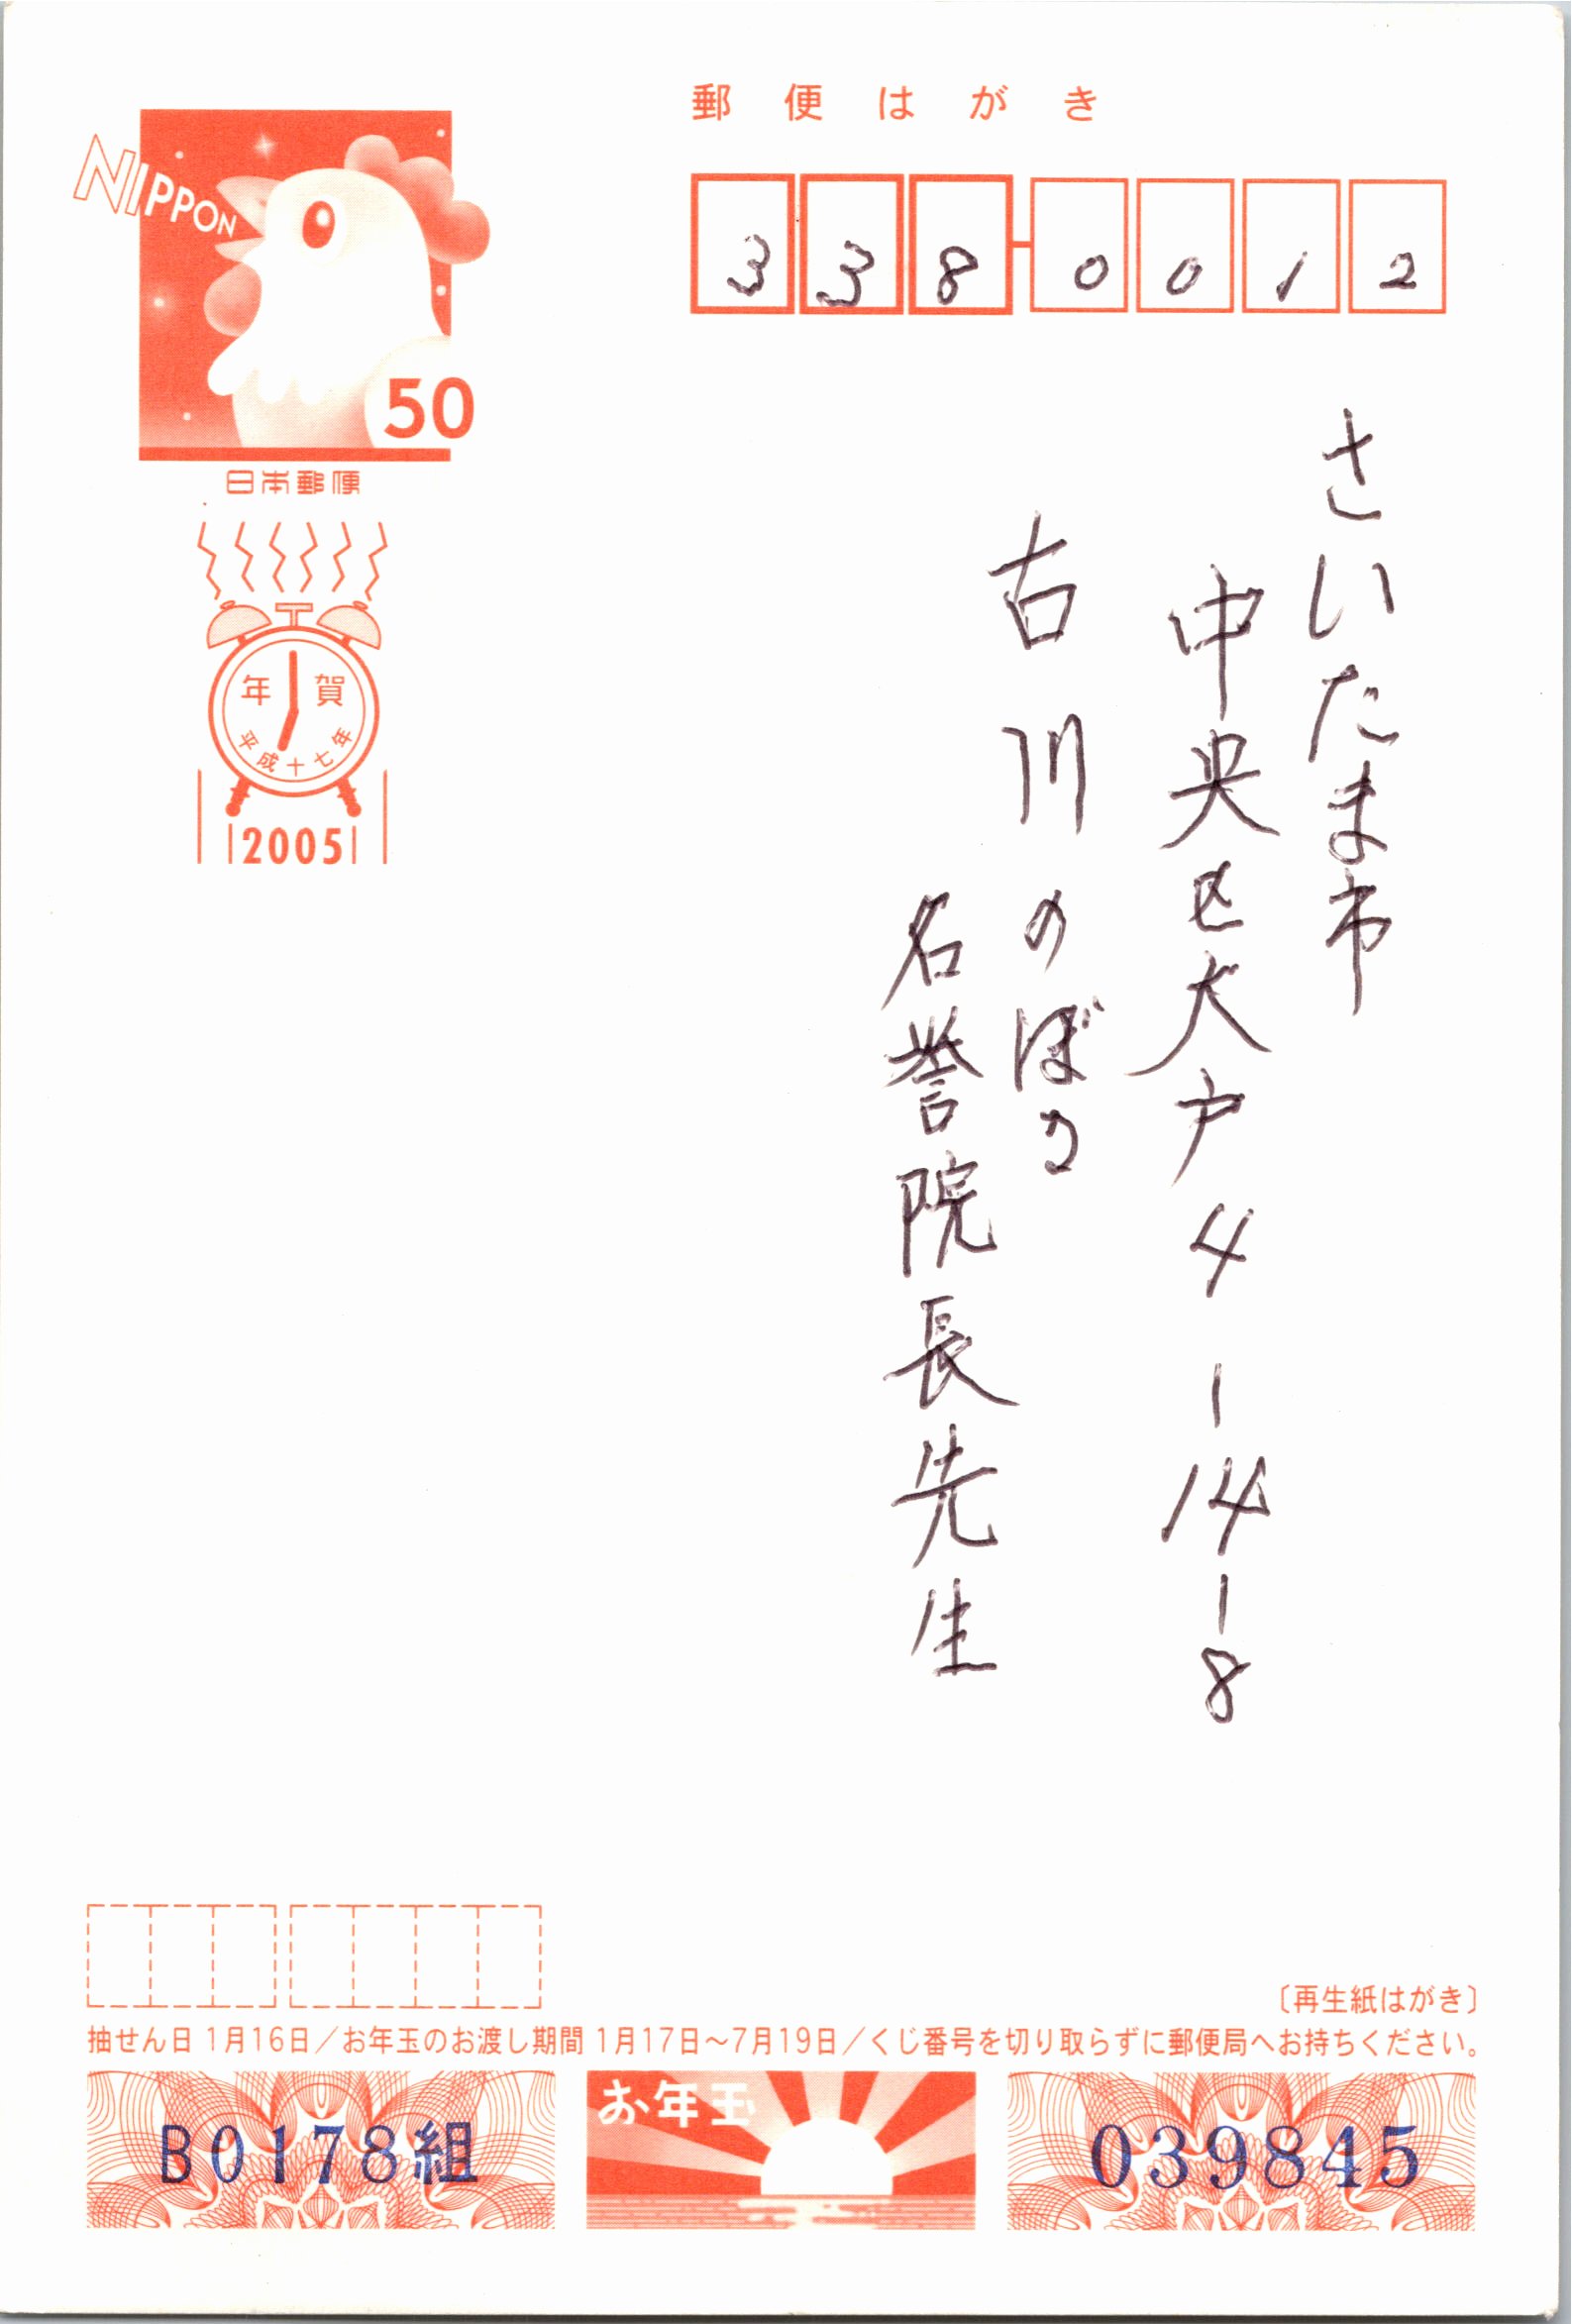 郵便はがき
338-0012
さいたま市
中央区大戸4-14-8
古川のぼる
名誉院長先生
NIPPON
50
日本郵便
年賀
平成十七年
2005
〔再生紙はがき〕
抽せん日 1月16日/お年玉のお渡し期間 1月17日~7月19日/くじ番号を切り取らずに郵便局へお持ちください。
B0178組
お年玉
039845